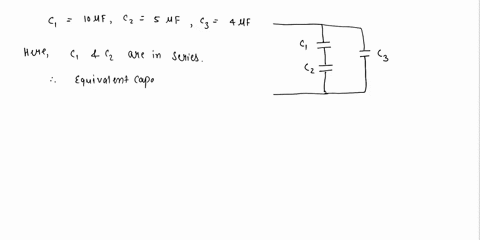 C₁ = 10 μF, C₂ = 5 μF, C₃ = 4 μF
Here, C₁ & C₂ are in series.
∴ Equivalent Capa
C₁
C₂
C₃